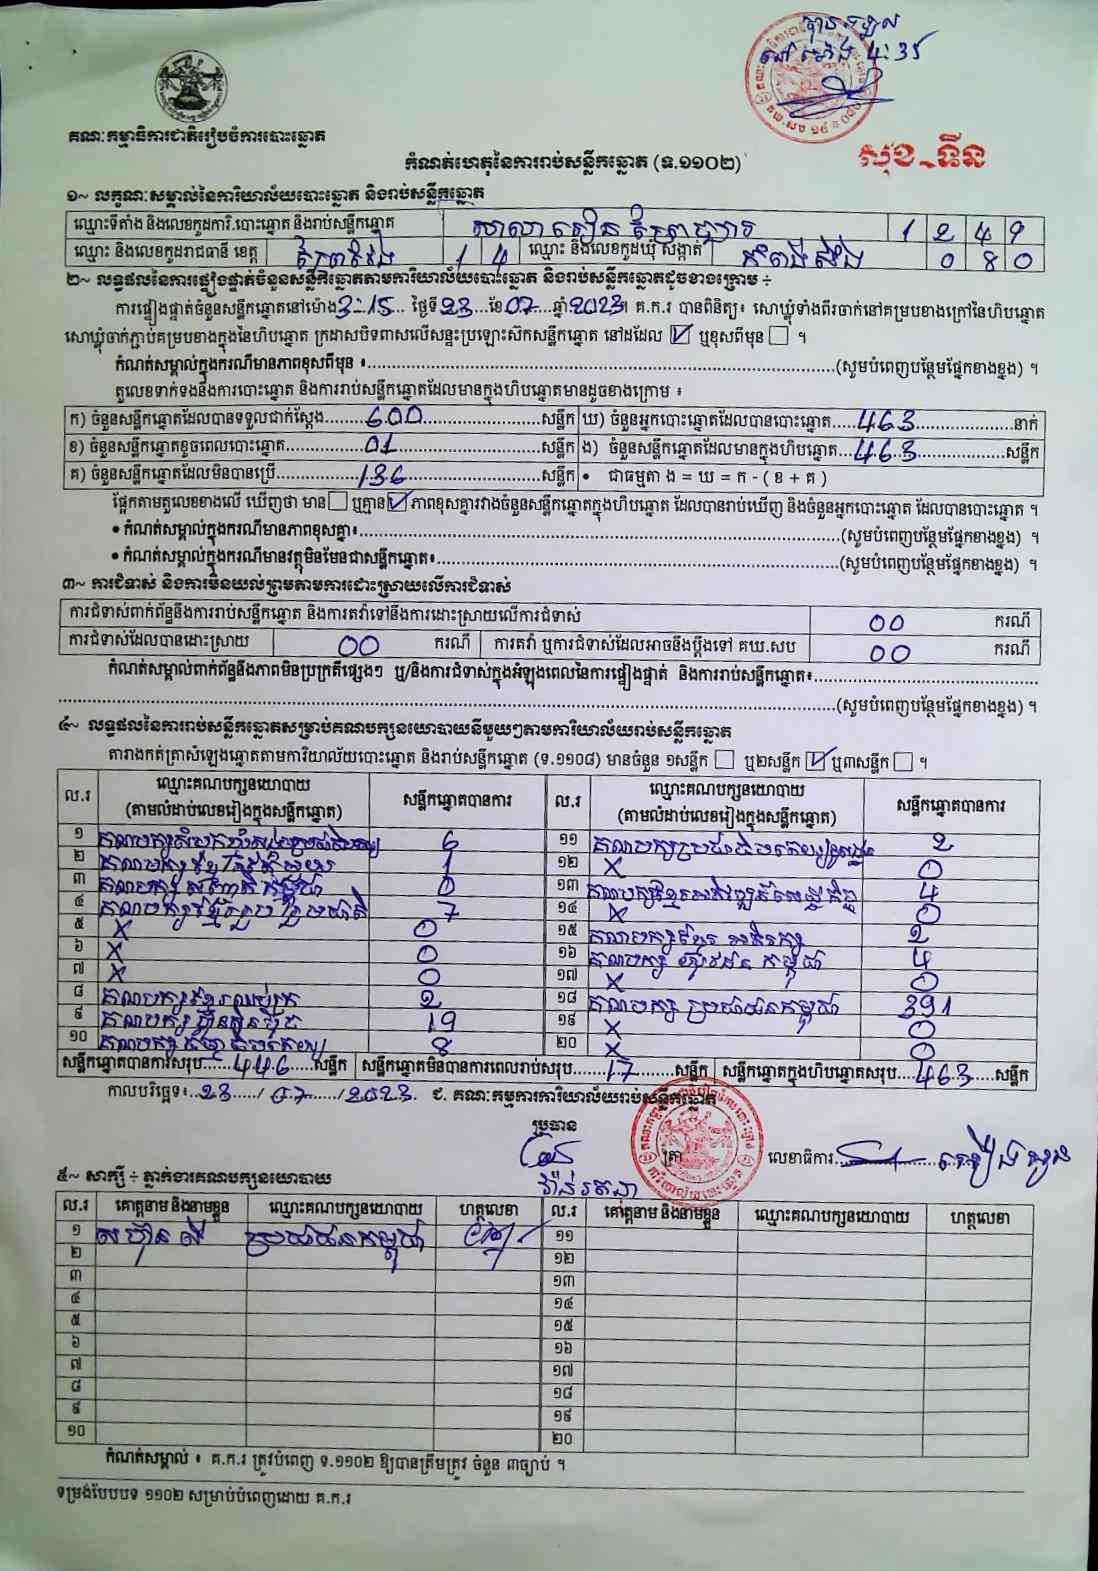 បានទទួល
នៅម៉ោង 4:35
គណៈកម្មាធិការជាតិរៀបចំការបោះឆ្នោត
សុខ-ទីន
កំណត់ហេតុនៃការរាប់សន្លឹកឆ្នោត (ទ.១១០២)
១~ លក្ខណៈសម្គាល់នៃការិយាល័យបោះឆ្នោត និងរាប់សន្លឹកឆ្នោត
ឈ្មោះទីតាំង និងលេខកូដការិ.បោះឆ្នោត និងរាប់សន្លឹកឆ្នោត សាលារៀន 1 2 4 9
ឈ្មោះ និងលេខកូដរាជធានី ខេត្ត ព្រៃវែង 1 4 ឈ្មោះ និងលេខកូដឃុំ សង្កាត់ 0 8 0
២~ លទ្ធផលនៃការផ្ទៀងផ្ទាត់ចំនួនសន្លឹកឆ្នោតតាមការិយាល័យបោះឆ្នោត និងរាប់សន្លឹកឆ្នោតដូចខាងក្រោម ÷
ការផ្ទៀងផ្ទាត់ចំនួនសន្លឹកឆ្នោតនៅម៉ោង 3:15 ថ្ងៃទី 23 ខែ 07 ឆ្នាំ 2023 គ.ក.រ បានពិនិត្យ៖ សោឃ្លុំទាំងពីរចាក់នៅគម្របខាងក្រៅនៃហិបឆ្នោត
សោឃ្លុំចាក់ភ្ជាប់គម្របខាងក្នុងនៃហិបឆ្នោត ក្រដាសបិទពាសលើសន្ទះប្រឡោះស៊កសន្លឹកឆ្នោត នៅដដែល ☑ ឬខុសពីមុន ☐ ។
កំណត់សម្គាល់ក្នុងករណីមានភាពខុសពីមុន ៖ (សូមបំពេញបន្ថែមផ្នែកខាងខ្នង) ។
តួលេខទាក់ទងនឹងការបោះឆ្នោត និងការរាប់សន្លឹកឆ្នោតដែលមានក្នុងហិបឆ្នោតមានដូចខាងក្រោម ៖
ក) ចំនួនសន្លឹកឆ្នោតដែលបានទទួលជាក់ស្តែង 600 សន្លឹក ឃ) ចំនួនអ្នកបោះឆ្នោតដែលបានបោះឆ្នោត 463 នាក់
ខ) ចំនួនសន្លឹកឆ្នោតខូចពេលបោះឆ្នោត 01 សន្លឹក ង) ចំនួនសន្លឹកឆ្នោតដែលមានក្នុងហិបឆ្នោត 463 សន្លឹក
គ) ចំនួនសន្លឹកឆ្នោតដែលមិនបានប្រើ 136 សន្លឹក • ជាធម្មតា ង = ឃ = ក - ( ខ + គ )
ផ្អែកតាមតួលេខខាងលើ ឃើញថា មាន ☐ ឬគ្មាន ☑ ភាពខុសគ្នារវាងចំនួនសន្លឹកឆ្នោតក្នុងហិបឆ្នោត ដែលបានរាប់ឃើញ និងចំនួនអ្នកបោះឆ្នោត ដែលបានបោះឆ្នោត ។
• កំណត់សម្គាល់ក្នុងករណីមានភាពខុសគ្នា៖ (សូមបំពេញបន្ថែមផ្នែកខាងខ្នង) ។
• កំណត់សម្គាល់ក្នុងករណីមានវត្ថុមិនមែនជាសន្លឹកឆ្នោត៖ (សូមបំពេញបន្ថែមផ្នែកខាងខ្នង) ។
៣~ ការជំទាស់ និងការមិនយល់ព្រមតាមការដោះស្រាយលើការជំទាស់
ការជំទាស់ពាក់ព័ន្ធនឹងការរាប់សន្លឹកឆ្នោត និងការតវ៉ាទៅនឹងការដោះស្រាយលើការជំទាស់ 00 ករណី
ការជំទាស់ដែលបានដោះស្រាយ 00 ករណី ការតវ៉ា ឬការជំទាស់ដែលអាចនឹងប្តឹងទៅ គឃ.សប 00 ករណី
កំណត់សម្គាល់ពាក់ព័ន្ធនឹងភាពមិនប្រក្រតីផ្សេងៗ ឬ/និងការជំទាស់ក្នុងអំឡុងពេលនៃការផ្ទៀងផ្ទាត់ និងការរាប់សន្លឹកឆ្នោត៖
(សូមបំពេញបន្ថែមផ្នែកខាងខ្នង) ។
៤~ លទ្ធផលនៃការរាប់សន្លឹកឆ្នោតសម្រាប់គណបក្សនយោបាយនីមួយៗតាមការិយាល័យរាប់សន្លឹកឆ្នោត
តារាងកត់ត្រាសំឡេងឆ្នោតតាមការិយាល័យបោះឆ្នោត និងរាប់សន្លឹកឆ្នោត (ទ.១១០៨) មានចំនួន ១សន្លឹក ☐ ឬ២សន្លឹក ☑ ឬ៣សន្លឹក ☐ ។
ល.រ ឈ្មោះគណបក្សនយោបាយ (តាមលំដាប់លេខរៀងក្នុងសន្លឹកឆ្នោត) សន្លឹកឆ្នោតបានការ ល.រ ឈ្មោះគណបក្សនយោបាយ (តាមលំដាប់លេខរៀងក្នុងសន្លឹកឆ្នោត) សន្លឹកឆ្នោតបានការ
១ គណបក្សសំបុកឃ្មុំសង្គមប្រជាធិបតេយ្យ 6 ១១ គណបក្ស 2
២ គណបក្សខ្មែរ 1 ១២ X 0
៣ គណបក្ស កម្ពុជា 0 ១៣ គណបក្សខ្មែរអភិវឌ្ឍន៍សេដ្ឋកិច្ច 4
៤ គណបក្សខ្មែររួបរួមជាតិ 7 ១៤ X 0
៥ X 0 ១៥ គណបក្សខ្មែរ អភិរក្ស 2
៦ X 0 ១៦ គណបក្ស យុវជន កម្ពុជា 4
៧ X 0 ១៧ X 0
៨ គណបក្សខ្មែរឈប់ក្រ 2 ១៨ គណបក្ស ប្រជាជនកម្ពុជា 391
៩ គណបក្ស ហ៊្វុនស៊ិនប៉ិច 19 ១៩ X 0
១០ គណបក្សកម្លាំងប្រជាធិបតេយ្យ 8 ២០ X 0
សន្លឹកឆ្នោតបានការសរុប 446 សន្លឹក សន្លឹកឆ្នោតមិនបានការពេលរាប់សរុប 17 សន្លឹក សន្លឹកឆ្នោតក្នុងហិបឆ្នោតសរុប 463 សន្លឹក
កាលបរិច្ឆេទ៖ 23 / 07 / 2023 ជ. គណៈកម្មការការិយាល័យរាប់សន្លឹកឆ្នោត
ប្រធាន
ត្រា លេខាធិការ
៥~ សាក្សី ÷ ភ្នាក់ងារគណបក្សនយោបាយ
ល.រ គោត្តនាម និងនាមខ្លួន ឈ្មោះគណបក្សនយោបាយ ហត្ថលេខា ល.រ គោត្តនាម និងនាមខ្លួន ឈ្មោះគណបក្សនយោបាយ ហត្ថលេខា
១ ប្រជាជនកម្ពុជា ១១
២ ១២
៣ ១៣
៤ ១៤
៥ ១៥
៦ ១៦
៧ ១៧
៨ ១៨
៩ ១៩
១០ ២០
កំណត់សម្គាល់ ៖ គ.ក.រ ត្រូវបំពេញ ទ.១១០២ ឱ្យបានត្រឹមត្រូវ ចំនួន ៣ច្បាប់ ។
ទម្រង់បែបបទ ១១០២ សម្រាប់បំពេញដោយ គ.ក.រ